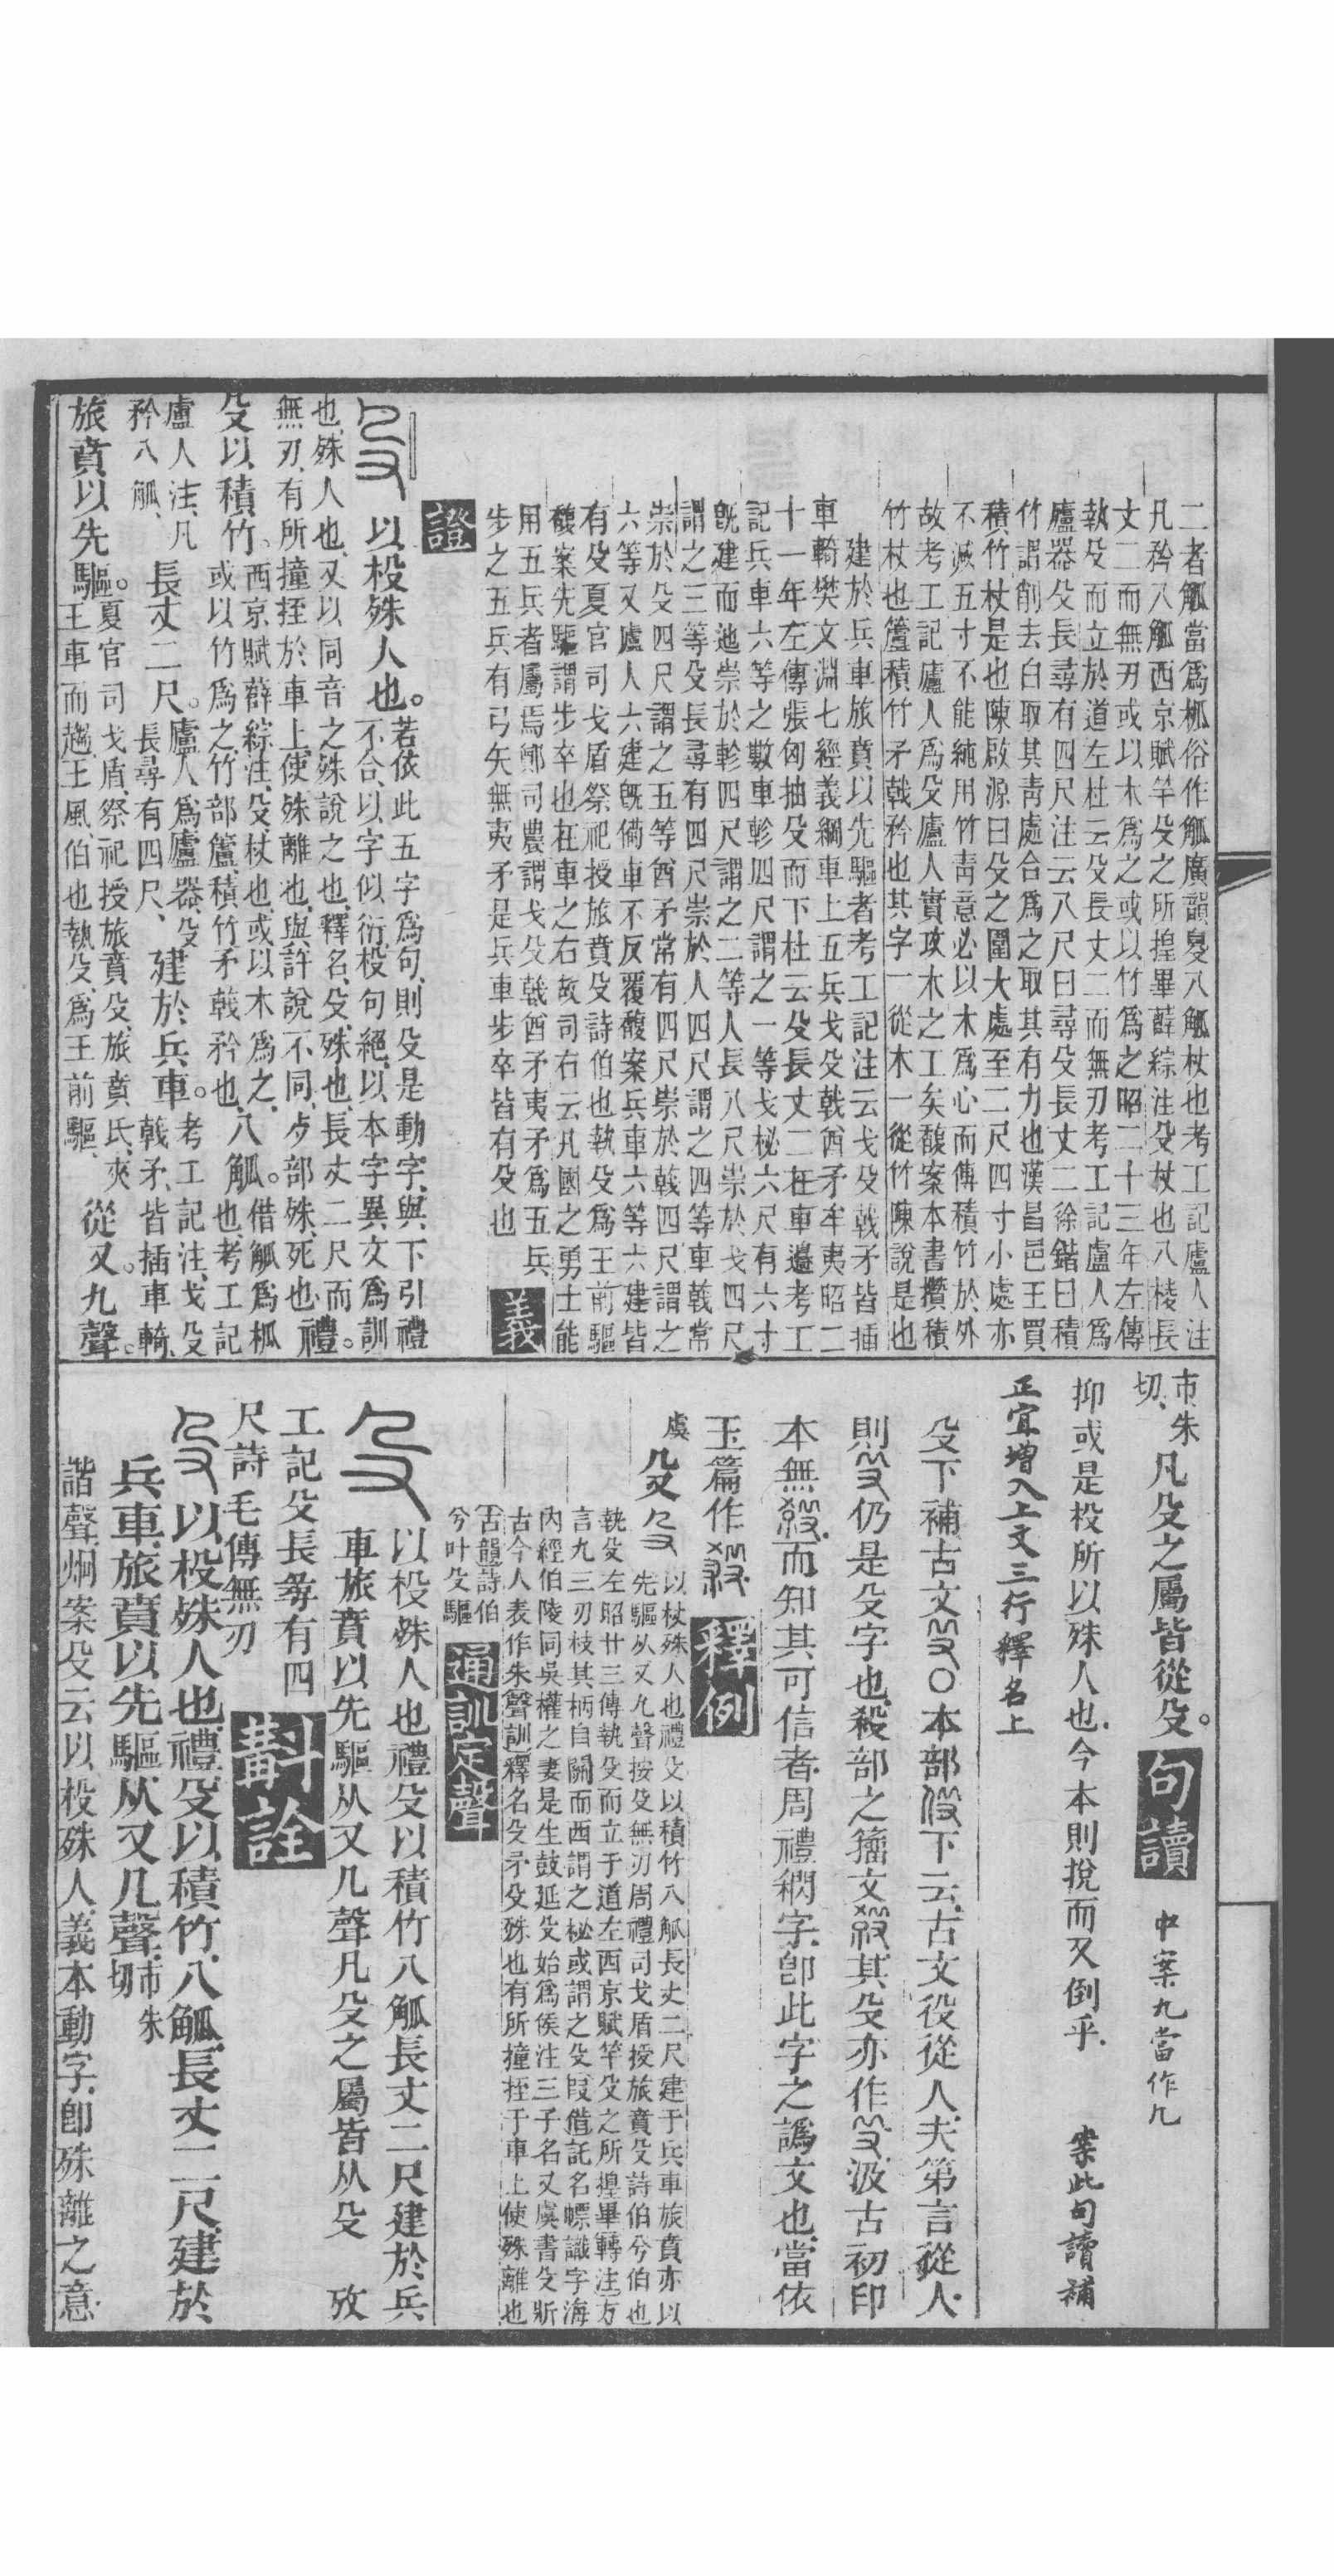 二者觚當爲柧俗作觚廣韻㕠八觚杖也考工記廬人注
凡矜八觚西京賦竿殳之所揘畢薛綜注殳杖也八棱長
丈二而無刃或以木爲之或以竹爲之昭二十三年左傳
執殳而立於道左杜云殳長丈二而無刃考工記廬人爲
廬器殳長尋有四尺注云八尺曰尋殳長丈二徐鍇曰積
竹謂削去白取其青處合爲之取其有力也漢昌邑王買
積竹杖是也陳啟源曰殳之圍大處至二尺四寸小處亦
不減五寸不能純用竹靑意必以木爲心而傅積竹於外
故考工記廬人爲殳廬人實攻木之工矣馥案本書欑積
竹杖也籚積竹矛戟矜也其字一從木一從竹陳說是也
建於兵車旅賁以先驅者考工記注云戈殳戟矛皆插
車輢樊文淵七經義綱車上五兵戈殳戟酋矛牟夷昭二
十一年左傳張匄抽殳而下杜云殳長丈二在車邉考工
記兵車六等之數車軫四尺謂之一等戈柲六尺有六寸
旣建而迆崇於軫四尺謂之二等人長八尺崇於戈四尺
謂之三等殳長尋有四尺崇於人四尺謂之四等車戟常
崇於殳四尺謂之五等酋矛常有四尺崇於戟四尺謂之
六等又廬人六建旣備車不反覆馥案兵車六等六建皆
有殳夏官司戈盾祭祀授旅賁殳詩伯也執殳爲王前驅
馥案先驅謂步卒也在車之右故司右云凡國之勇士能
用五兵者屬焉鄭司農謂戈殳戟酋矛夷矛爲五兵
步之五兵有弓矢無夷矛是兵車步卒皆有殳也 義
證
殳 以杸殊人也。若依此五字爲句、則殳是動字、與下引禮
不合、以字似衍、杸句絕、以本字異文爲訓
也、殊人也、又以同音之殊說之也、釋名、殳、殊也、長丈二尺而
無刃、有所撞挃於車上、使殊離也、與許說不同、歺部殊、死也、禮。
殳以積竹。西京賦薛綜注、殳、杖也、或以木爲之、
或以竹爲之、竹部籚、積竹矛戟矜也、八觚。借觚爲柧
也、考工記
廬人注、凡
矜八觚、長丈二尺。廬人爲廬器、殳
長尋有四尺、建於兵車。考工記注、戈殳
戟矛、皆插車輢、
旅賁以先驅。夏官司戈盾、祭祀授旅賁殳、旅賁氏、夾
王車而趨、王風、伯也執殳、爲王前驅、從又。九聲。
市朱
切、凡殳之屬皆從殳。句讀 中案九當作几
抑或是杸所以殊人也、今本則捝而又倒乎、 案此句讀補
正宜增入上文三行釋名上
殳下補古文○本部役下云、古文役從人、夫第言從人、
則仍是殳字也、殺部之籀文其殳亦作、汲古初印
本無而知其可信者、周禮字、卽此字之譌文也、當依
玉篇作 釋例
虞殳 以杖殊人也禮文以積竹八觚長丈二尺建于兵車旅賁亦以
先驅从又九聲按殳無刃周禮司戈盾授旅賁殳詩伯兮伯也
執殳左昭廿三傳執殳而立于道左西京賦竿殳之所揘畢轉注方
言九三刃枝其柄自關而西謂之柲或謂之殳叚借託名幖識字海
內經伯陵同吳權之妻是生鼓延殳始爲侯注三子名又虞書殳斨
古今人表作朱聲訓釋名殳矛殳殊也有所撞挃于車上使殊離也
古韻詩伯
兮叶殳驅 通訓定聲
殳 以杸殊人也禮殳以積竹八觚長丈二尺建於兵
車旅賁以先驅从又几聲凡殳之屬皆从殳 攷
工記殳長尋有四
尺詩毛傳無刃 斠詮
殳 以杸殊人也、禮、殳以積竹、八觚、長丈二尺、建於
兵車、旅賁以先驅、从又几聲、市朱
切
諧聲、烱案殳云以杸殊人、義本動字、卽殊離之意、